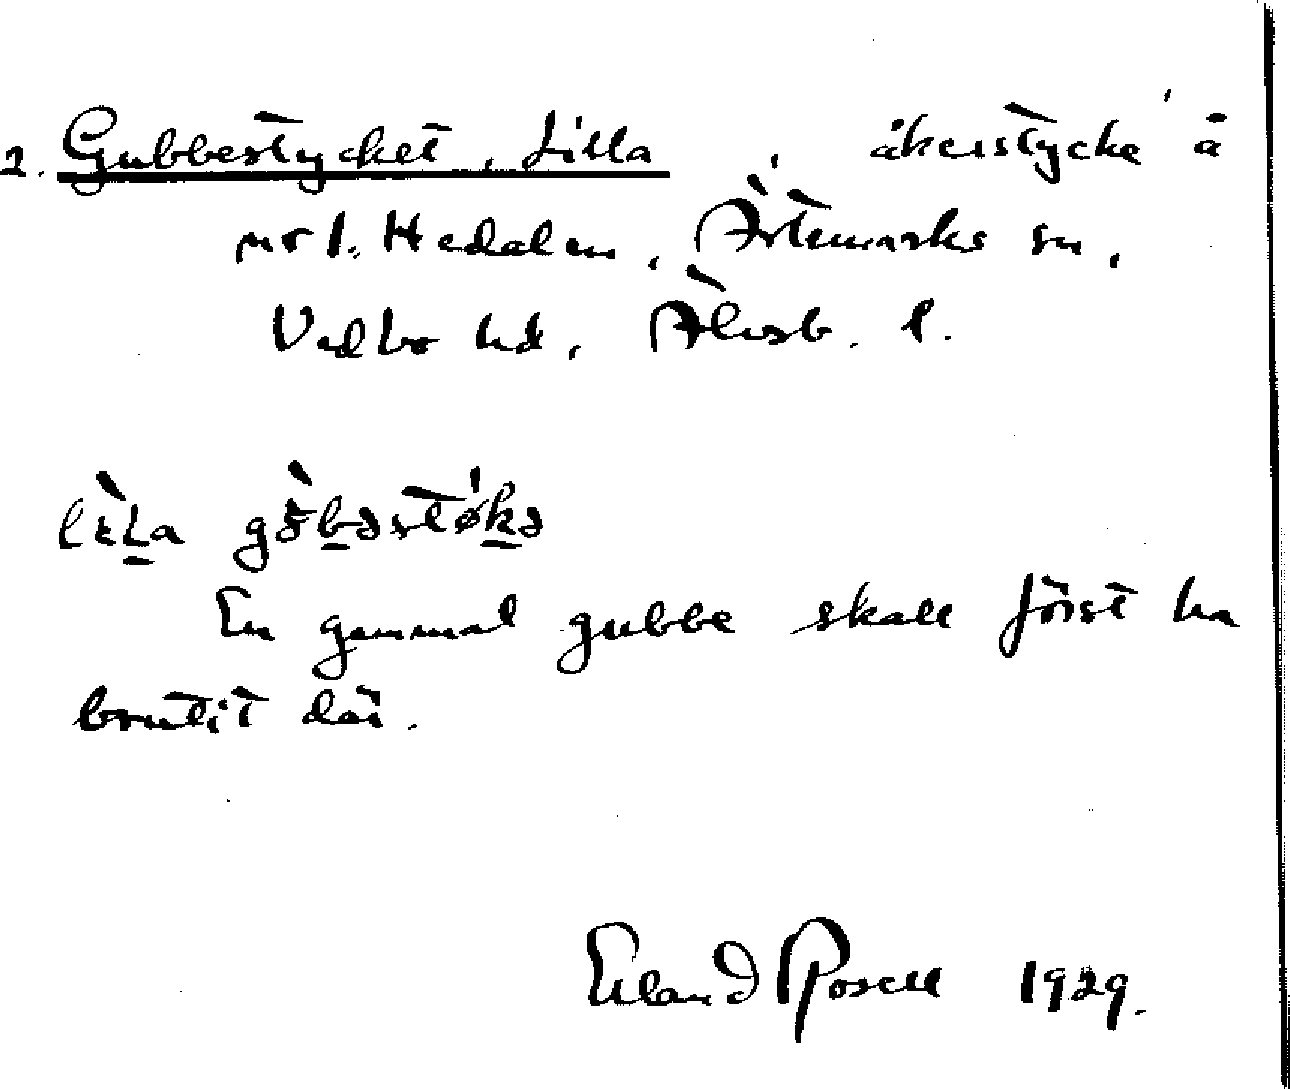 2. Gubbestycket, Lilla, åkerstycke å
nr 1. Hedalen, Ärtemarks sn,
Vedbo hd, Älvsb. l.
En gammal gubbe skall först ha
brutit där.
Erland Rosell 1929.